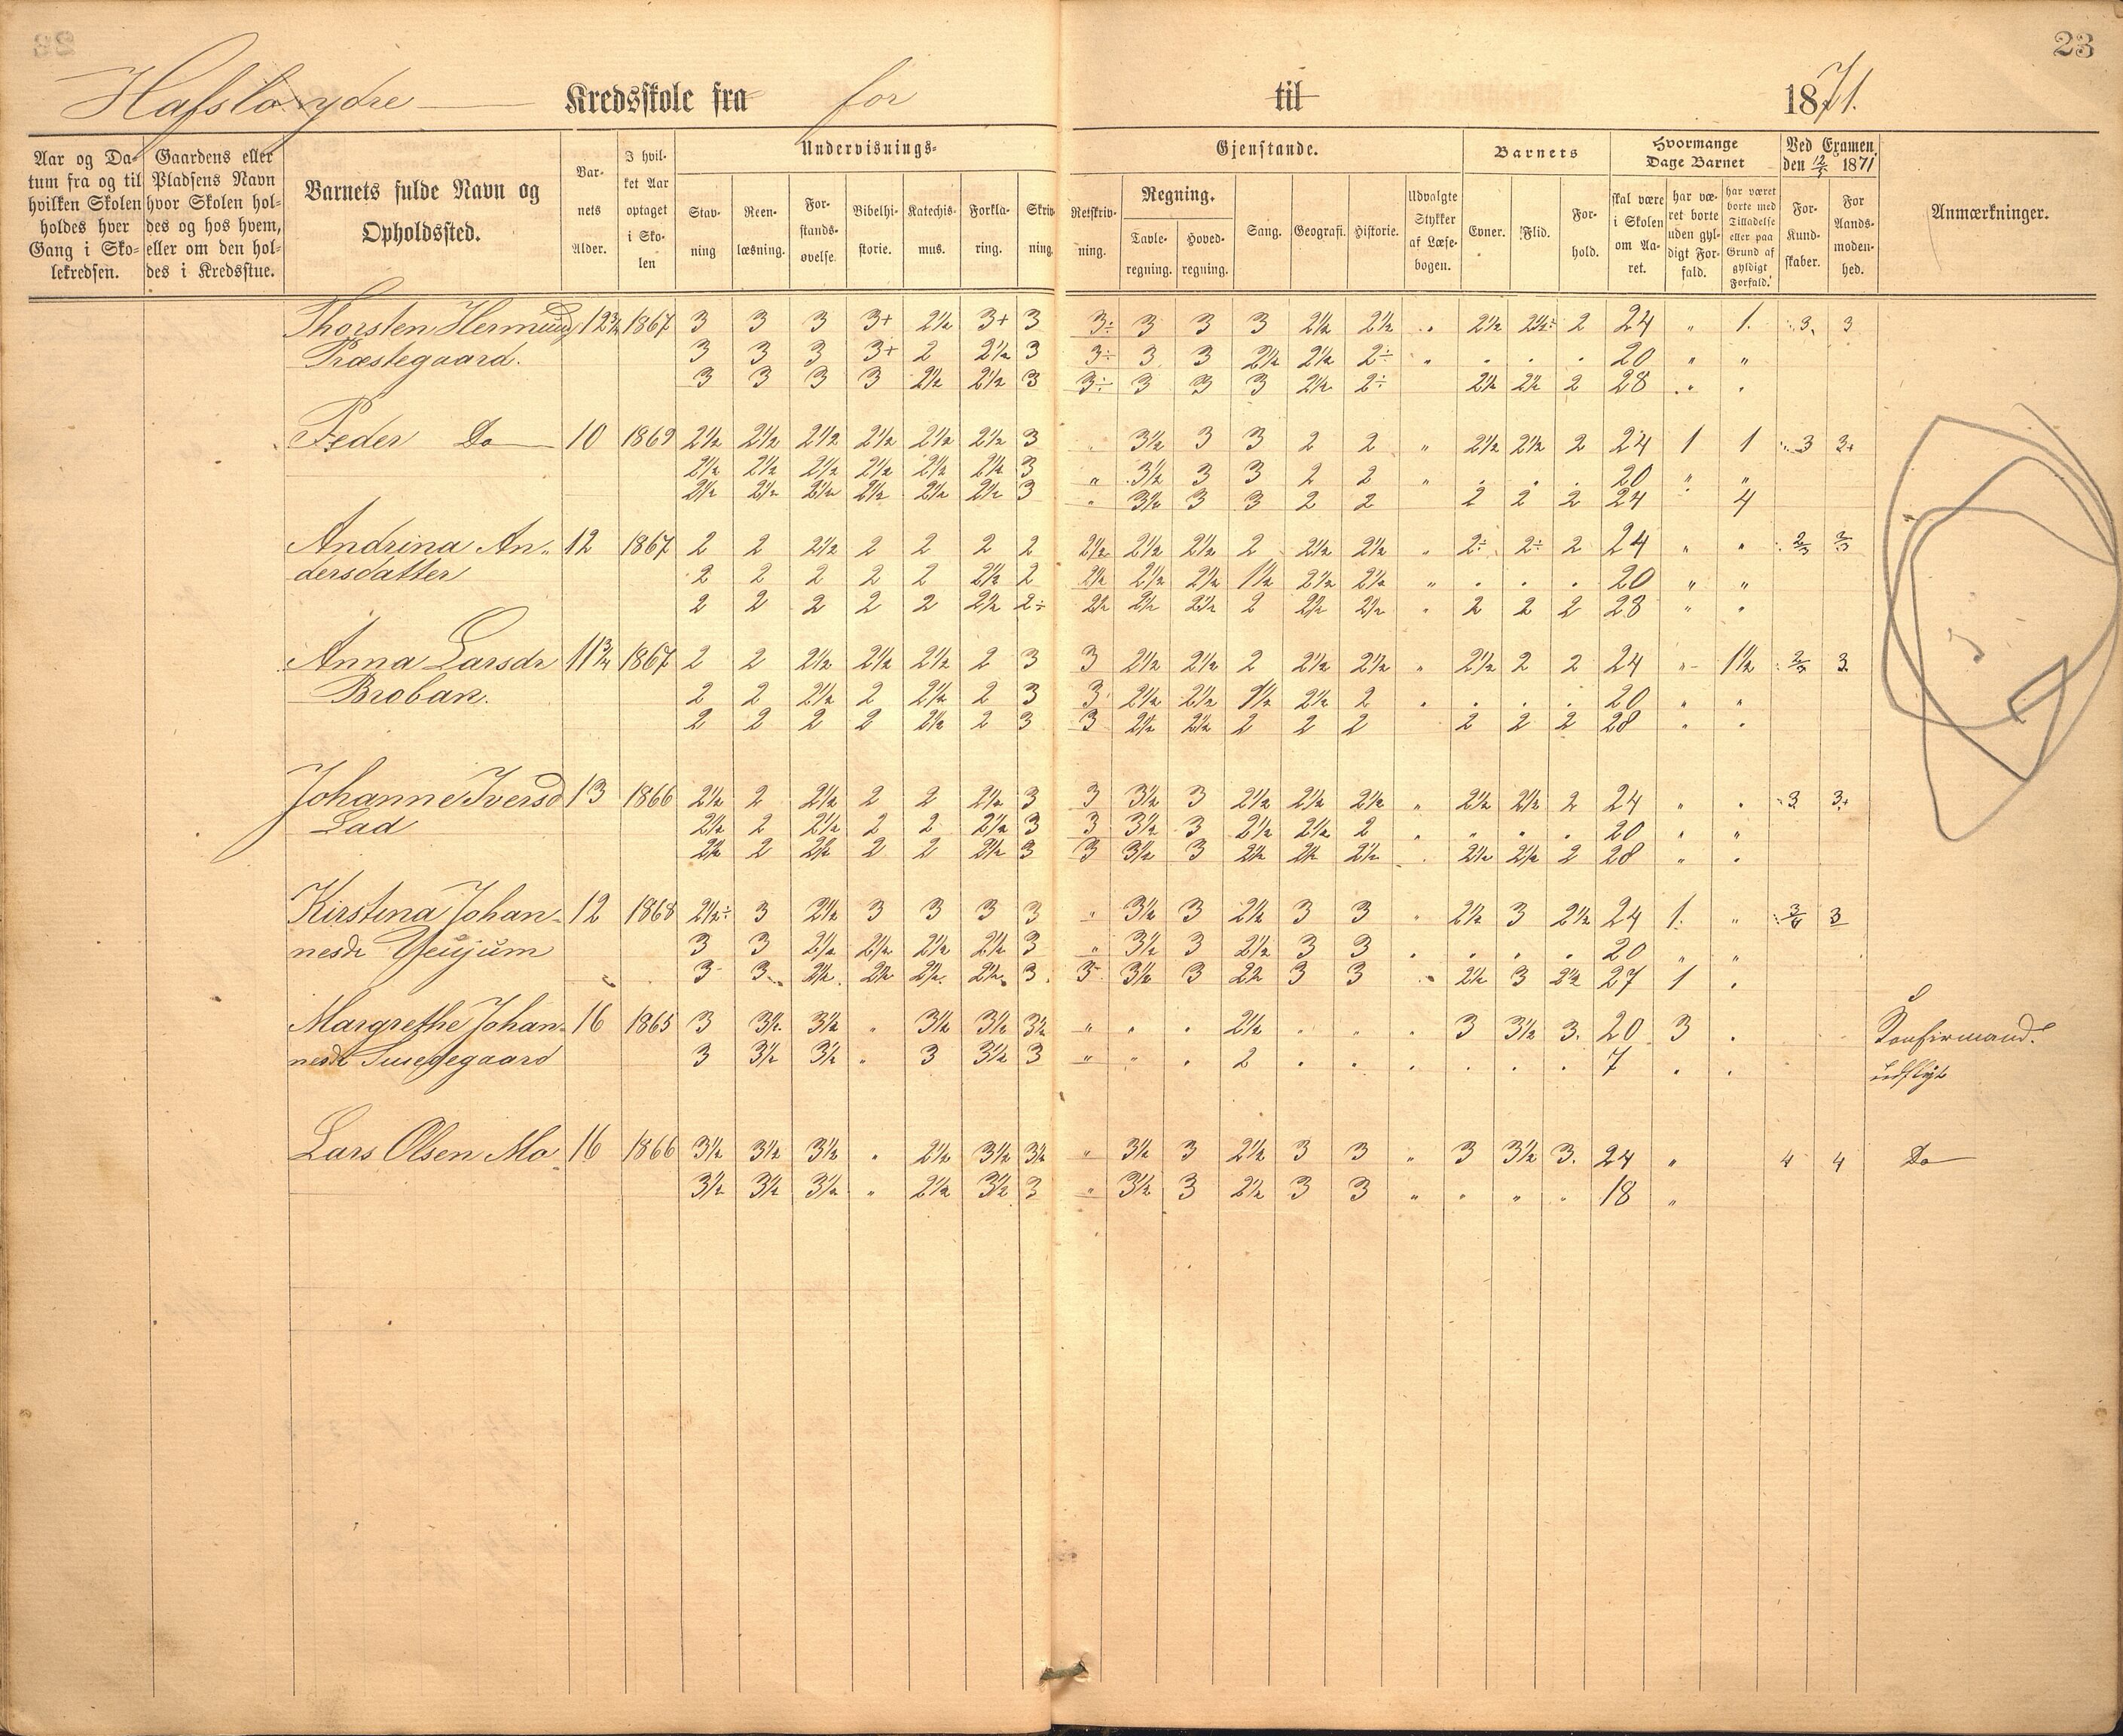 23
Hafslo ydre Kredsskole fra for til 1871.
Aar og Datum fra og til hvilken Skolen holdes hver Gang i Skolekredsen.
Gaardens eller Pladsens Navn hvor Skolen holdes og hos hvem, eller om den holdes i Kredsstue.
Barnets fulde Navn og Opholdssted.
Barnets Alder.
I hvilket Aar optaget i Skolen
Undervisnings-
Stavning
Reenlæsning.
Forstandsøvelse.
Bibelhistorie.
Katechismus.
Forklaring.
Skrivning.
Gjenstande.
Retskrivning.
Regning.
Tavleregning.
Hovedregning.
Sang.
Geografi.
Historie.
Udvalgte Stykker af Læsebogen.
Barnets
Evner.
Flid.
Forhold.
Hvormange Dage Barnet
skal være i Skolen om Aaret.
har været borte uden gyldigt Forfald.
har været borte med Tilladelse eller paa Grund af gyldigt Forfald.
Ved Examen, den 12/5 1871
For Kundskaber.
For Aandsmodenhed.
Anmærkninger.
Thorsten Hermund 12 3/4 1867 3 3 3 3+ 2½ 3+ 3 3÷ 3 3 3 2½ 2½ „ 2½ 2½÷ 2 24 „ 1. 3. 3
Præstegaard. 3 3 3 3+ 2 2½ 3 3÷ 3 3 2½ 2½ 2÷ „ . . . 20 „ „
3 3 3 3 2½ 2½ 3 3÷ 3 3 3 2½ 2÷ 2½ 2½ 2 28 „ .
Peder Do 10 1869 2½ 2½ 2½ 2½ 2½ 2½ 3 „ 3½ 3 3 2 2 „ 2½ 2½ 2 24 1 1 3 3+
2½ 2½ 2½ 2½ 2½ 2½ 3 „ 3½ 3 3 2 2 „ . . . 20 „ „
2½ 2½ 2½ 2½ 2½ 2½ 3 „ 3½ 3 3 2 2 2 2 2 24 4
Andrina An- 12 1867 2 2 2½ 2 2 2 2 2½ 2½ 2½ 2 2½ 2½ „ 2÷ 2÷ 2 24 „ „ 2/3 2/3
dersdatter 2 2 2 2 2 2½ 2 2½ 2½ 2½ 1½ 2½ 2½ „ . . . 20 „ „
2 2 2 2 2 2½ 2÷ 2½ 2½ 2½ 2 2½ 2½ „ 2 2 2 28 „ „
Anna Larsdr 11 3/4 1867 2 2 2½ 2½ 2½ 2 3 3 2½ 2½ 2 2½ 2½ „ 2½ 2 2 24 „ 1½ 2/3 3
Broban. 2 2 2½ 2 2½ 2 3 3 2½ 2½ 1½ 2½ 2 . . . . 20 „ „
2 2 2 2 2½ 2 3 3 2½ 2½ 2 2 2 2 2 2 28 „ .
Johanne Iversd 13 1866 2½ 2 2½ 2 2 2½ 3 3 3½ 3 2½ 2½ 2½ „ 2½ 2½ 2 24 „ . 3 3+
Lad 2½ 2 2½ 2 2 2½ 3 3 3½ 3 2½ 2½ 2 . „ . . 20 „ „
2½ 2 2½ 2 2 2½ 3 3 3½ 3 2½ 2½ 2½ . 2½ 2½ 2 28 „ .
Kirstina Johan- 12 1868 2½÷ 3 2½ 3 3 3 3 „ 3½ 3 2½ 3 3 „ 2½ 3 2½ 24 1. „ 3/4 3
nesdr 3 3 2½ 2½ 2½ 2½ 3 „ 3½ 3 2½ 3 3 . . . . 20 „ „
3 3 2½ 2½ 2½ 2½ 3 3 3½ 3 2½ 3 3 . 2½ 3 2½ 27 1 .
Margrethe Johan- 16 1865 3 3½ 3½ „ 3½ 3½ 3½ „ . . 2½ . . . 3 3½ 3. 20 3 . Konfirmand.
nesdr 3 3½ 3½ „ 3 3½ 3 „ „ . 2 . . . . . . 7 . . udflyt
Lars Olsen Mo 16 1866 3½ 3½ 3½ „ 2½ 3½ 3½ „ 3½ 3 2½ 3 3 „ 3 3½ 3. 24 „ 4 4 Do
3½ 3½ 3½ „ 2½ 3½ 3 „ 3½ 3 2½ 3 3 „ „ „ . 18 „